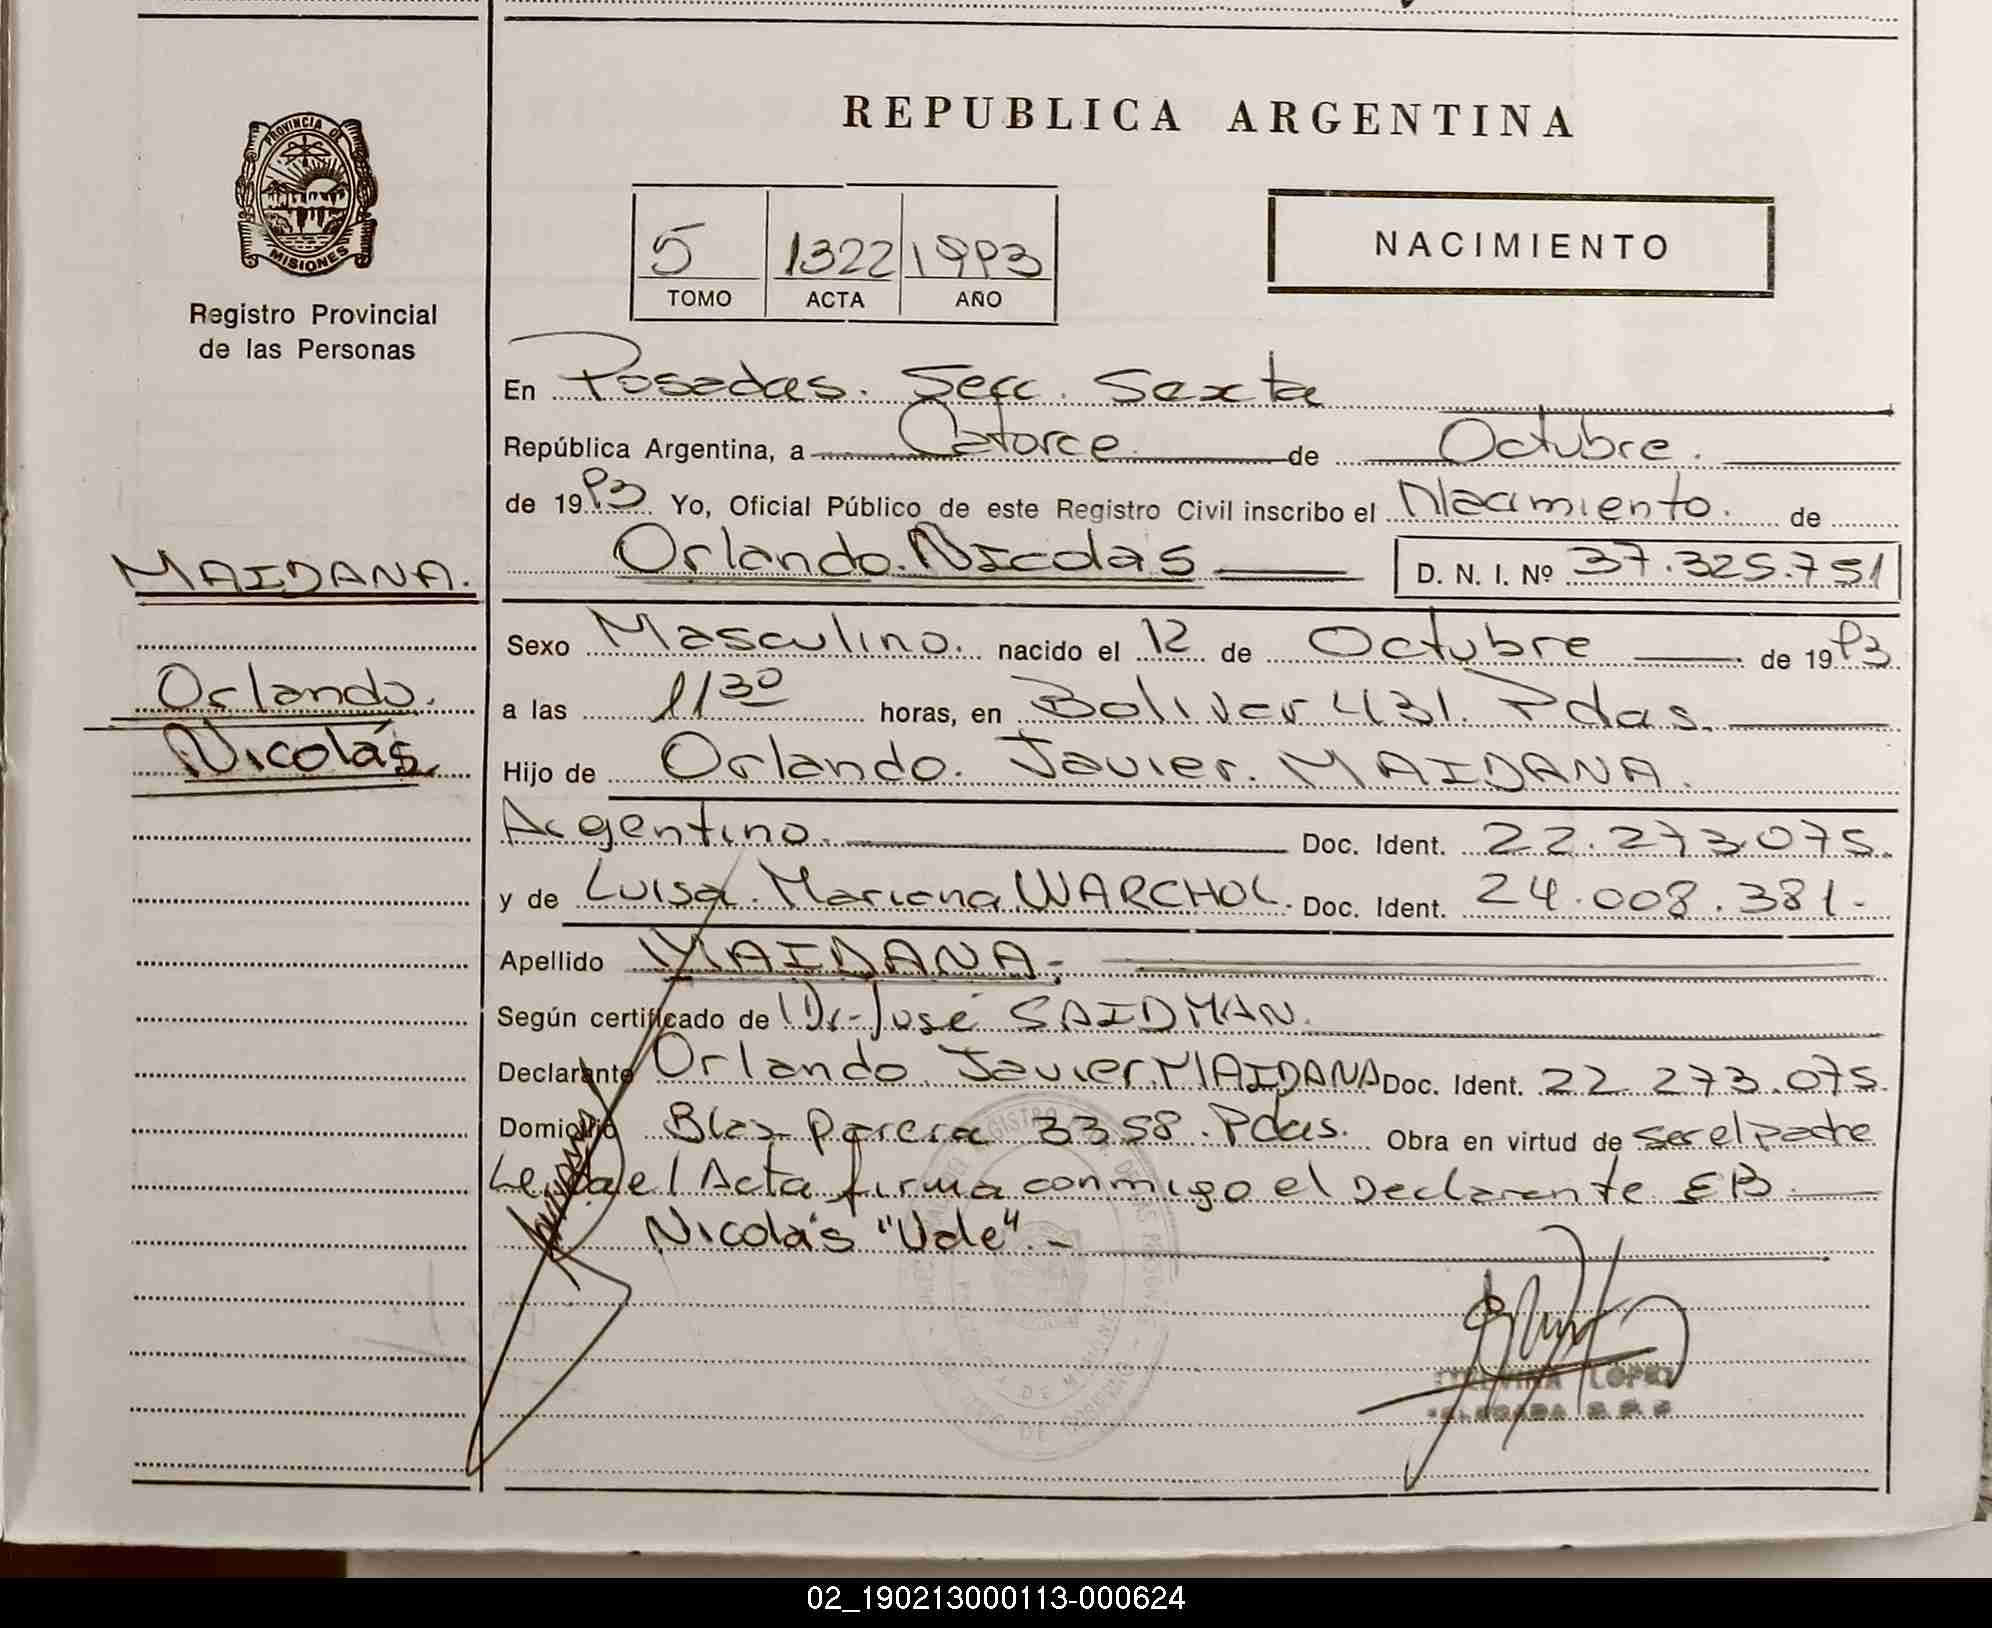 REPUBLICA ARGENTINA
PROVINCIA DE
MISIONES
Registro Provincial
de las Personas
5 1322 1993
TOMO ACTA AÑO
NACIMIENTO
En Posadas. Secc. Sexta
República Argentina, a Catorce de Octubre.
de 1993 Yo, Oficial Público de este Registro Civil inscribo el Nacimiento. de
MAIDANA.
Orlando. Nicolás D. N. I. Nº 37.325.751
Sexo Masculino. nacido el 12 de Octubre de 1993
Orlando.
a las 11 30 horas, en Bolivar 431. Pdas.
Nicolás
Hijo de Orlando. Javier. MAIDANA.
Argentino. Doc. Ident. 22.273.075.
y de Luisa. Mariana WARCHOL. Doc. Ident. 24.008.381.-
Apellido MAIDANA.
Según certificado de Dr. José SAIDMAN.
Declarante Orlando Javier MAIDANA Doc. Ident. 22.273.075.
Domicilio Blas Parera 3358. Pdas. Obra en virtud de ser el padre
Leida el Acta firma conmigo el Declarante EB.
Nicolás "Vale".-
LOPEZ
02_190213000113-000624